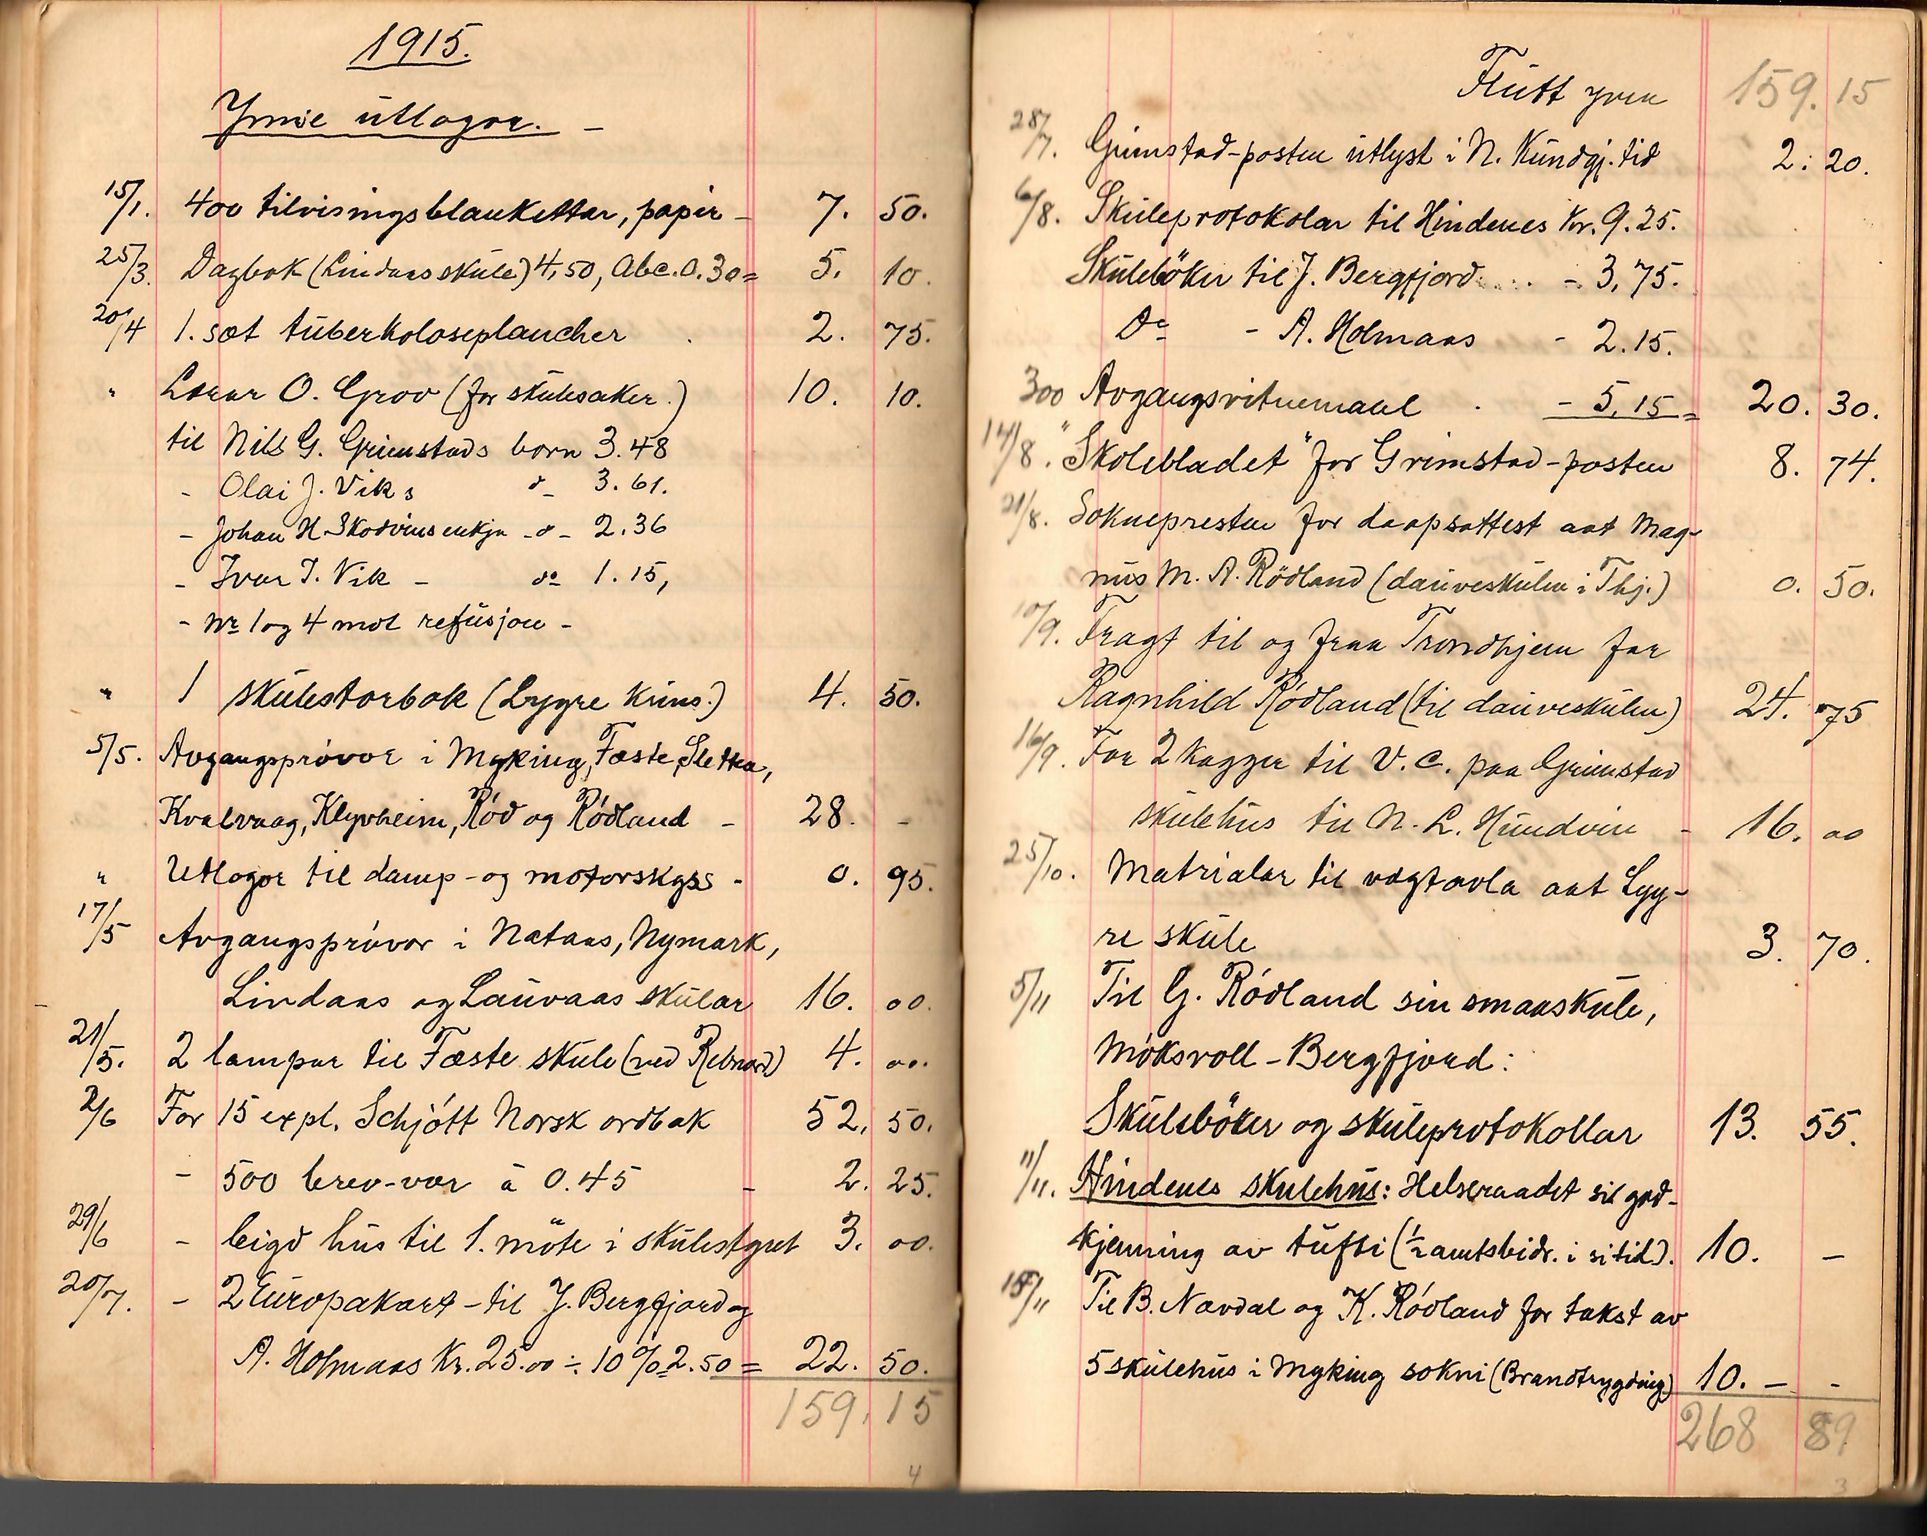 1915.
Ymse utlogor. –
15/1. 400 tilvisingsblankettar, papir – 7. 50.
25/3. Dagbok (Lindaas skule) 4,50, Abc. 0.30 = 5. 10.
20/4 1. sæt tuberkoloseplancher 2. 75.
" Lærar O. Grov (for skulesaker.) 10. 10.
til Nils G. Grimstads born 3.48
- Olai J. Viks do 3.61.
- Johan H. Skodvins enkja - do - 2.36
- Ivar I. Vik - do 1.15,
- Nr 1 og 4 mot refusjon -
" 1 skulestorbok (Lygre krins.) 4. 50.
5/5. Avgangsprøvor i Myking, Fæste, Sletta,
Kvalvaag, Klyvheim, Rød og Rødland – 28. –
" Utlogor til damp- og motorskyss - 0. 95.
17/5 Avgangsprøvor i Nataas, Nymark,
Lindaas og Lauvaas skular 16. 00.
21/5. 2 lampur til Fæste skule (ved Rebnord) 4. 00.
2/6 For 15 expl. Schjøtt Norsk ordbok 52. 50.
- 500 brev-var à 0.45 – 2. 25.
29/6 - leigd hus til 1. möte i skulestyret 3. 00.
20/7. - 2 Europakart - til J. Bergfjord og
A. Holmaas Kr. 25.00 ÷ 10% = 2.50 = 22. 50.
159. 15
4
Flutt yver 159. 15
28/7. Grimstad-posten utlyst i N. Kundgj. tid 2. 20.
6/8. Skuleprotokolar til Hindenes Kr. 9.25.
Skulebøker til J. Bergfjord . . - 3,75.
Do - A. Holmaas - 2.15.
300 Avgangsvitnemaal . - 5,15 = 20. 30.
14/8. "Skolebladet" for Grimstad-posten 8. 74.
21/8. Soknepresten for daapsattest aat Mag-
nus M. A. Rödland (dauveskulen i Thj.) 0. 50.
10/9. Fragt til og fraa Trondhjem for
Ragnhild Rødland (til dauveskulen) 24. 75
16/9. For 2 kagger til V. C. paa Grimstad
skulehus til N. L. Hundvin - 16. 00
25/10. Matrialar til vægtavla aat Lyg-
re skule 3. 70.
5/11 Til G. Rødland sin smaaskule,
Møksvoll - Bergfjord:
Skulebøker og skuleprotokollar 13. 55.
11/11. Hindenes skulehus: Helseraadet sil god-
kjenning av tufti (½ amtsbidr. i si tid). 10. –
15/11 Til B. Nævdal og K. Rødland for takst av
5 skulehus i Myking sokni (Brandtrygding) 10. – -
268 89
3